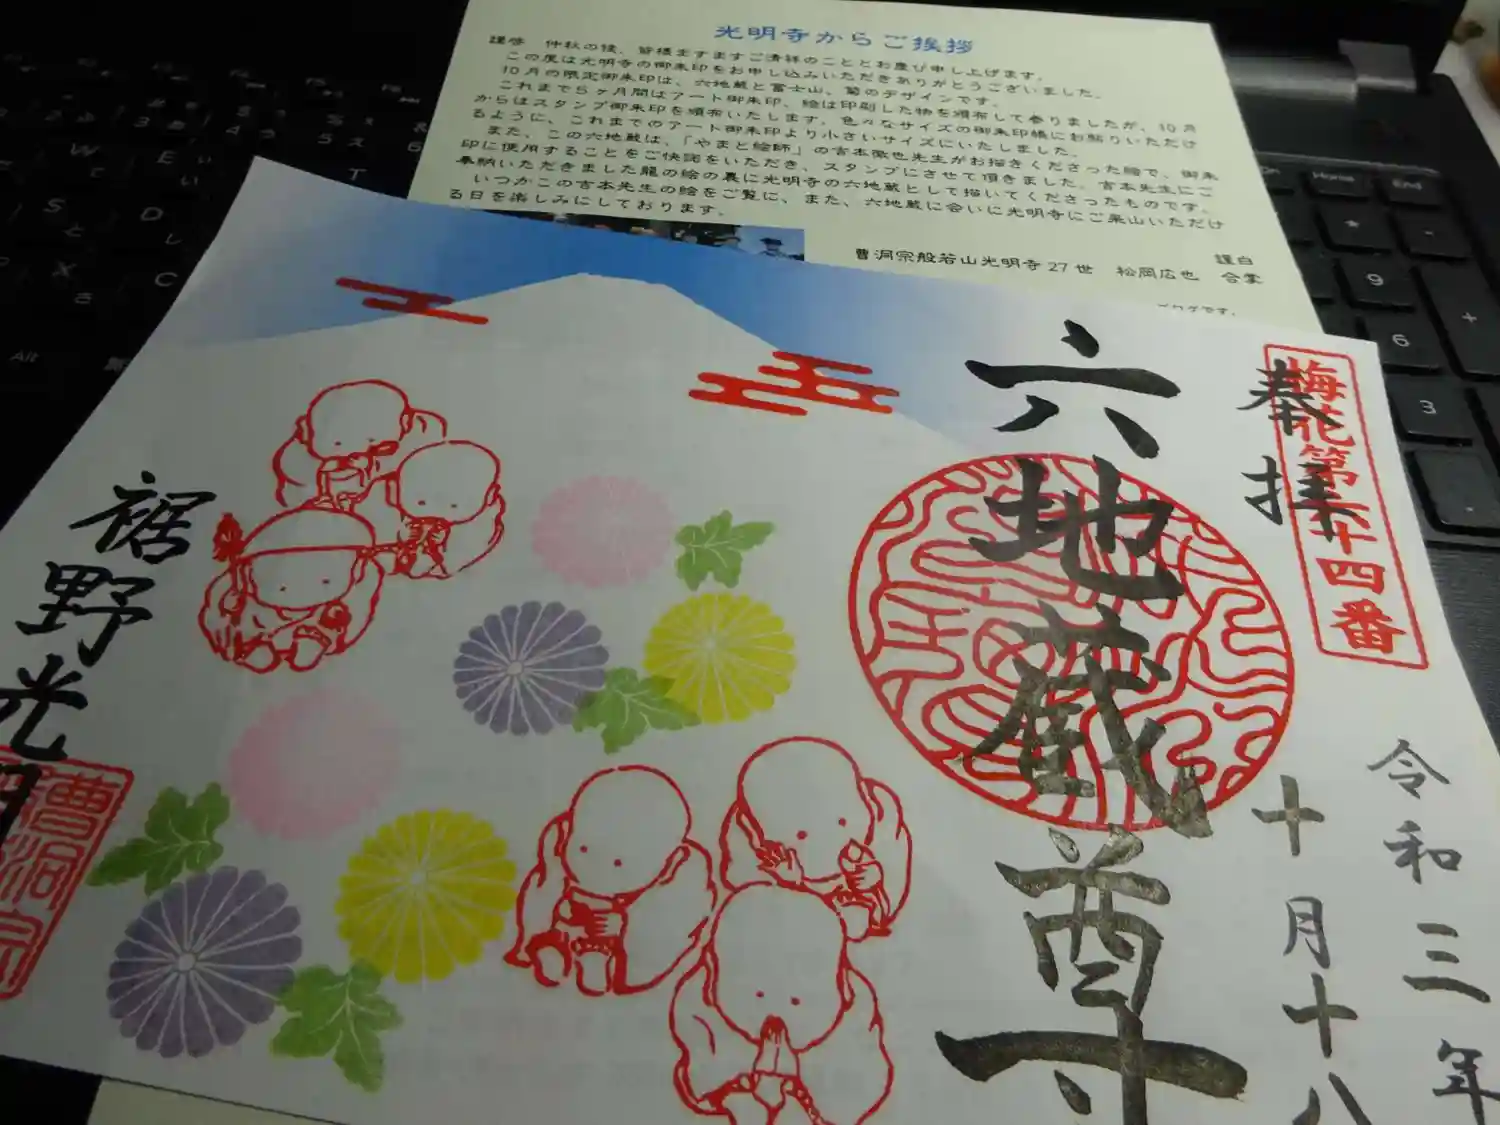 光明寺からご挨拶
謹啓 仲秋の候、皆様ますますご清祥のこととお慶び申し上げます。
この度は光明寺の御朱印をお申し込みいただきありがとうございました。
10月の限定御朱印は、六地蔵と富士山、菊のデザインです。
これまで5ヶ月間はアート御朱印、絵は印刷した物を頒布して参りましたが、10月
からはスタンプ御朱印を頒布いたします。色々なサイズの御朱印帳にお貼りいただけ
るように、これまでのアート御朱印より小さいサイズにいたしました。
また、この六地蔵は、「やまと絵師」の吉本徹也先生がお描きくださった絵で、御朱
印に使用することをご快諾をいただき、スタンプにさせて頂きました。吉本先生にご
奉納いただきました龍の絵の裏に光明寺の六地蔵として描いてくださったものです。
いつかこの吉本先生の絵をご覧に、また、六地蔵に会いに光明寺にご来山いただけ
る日を楽しみにしております。
謹白
曹洞宗般若山光明寺27世 松岡広也 合掌
です。
梅花第六十四番
奉拝
令和三年
十月十八
六地蔵尊
裾野光明
曹洞宗
W
E
T
S
D
X
C
Alt
Home
End
9
6
3
+
*
-